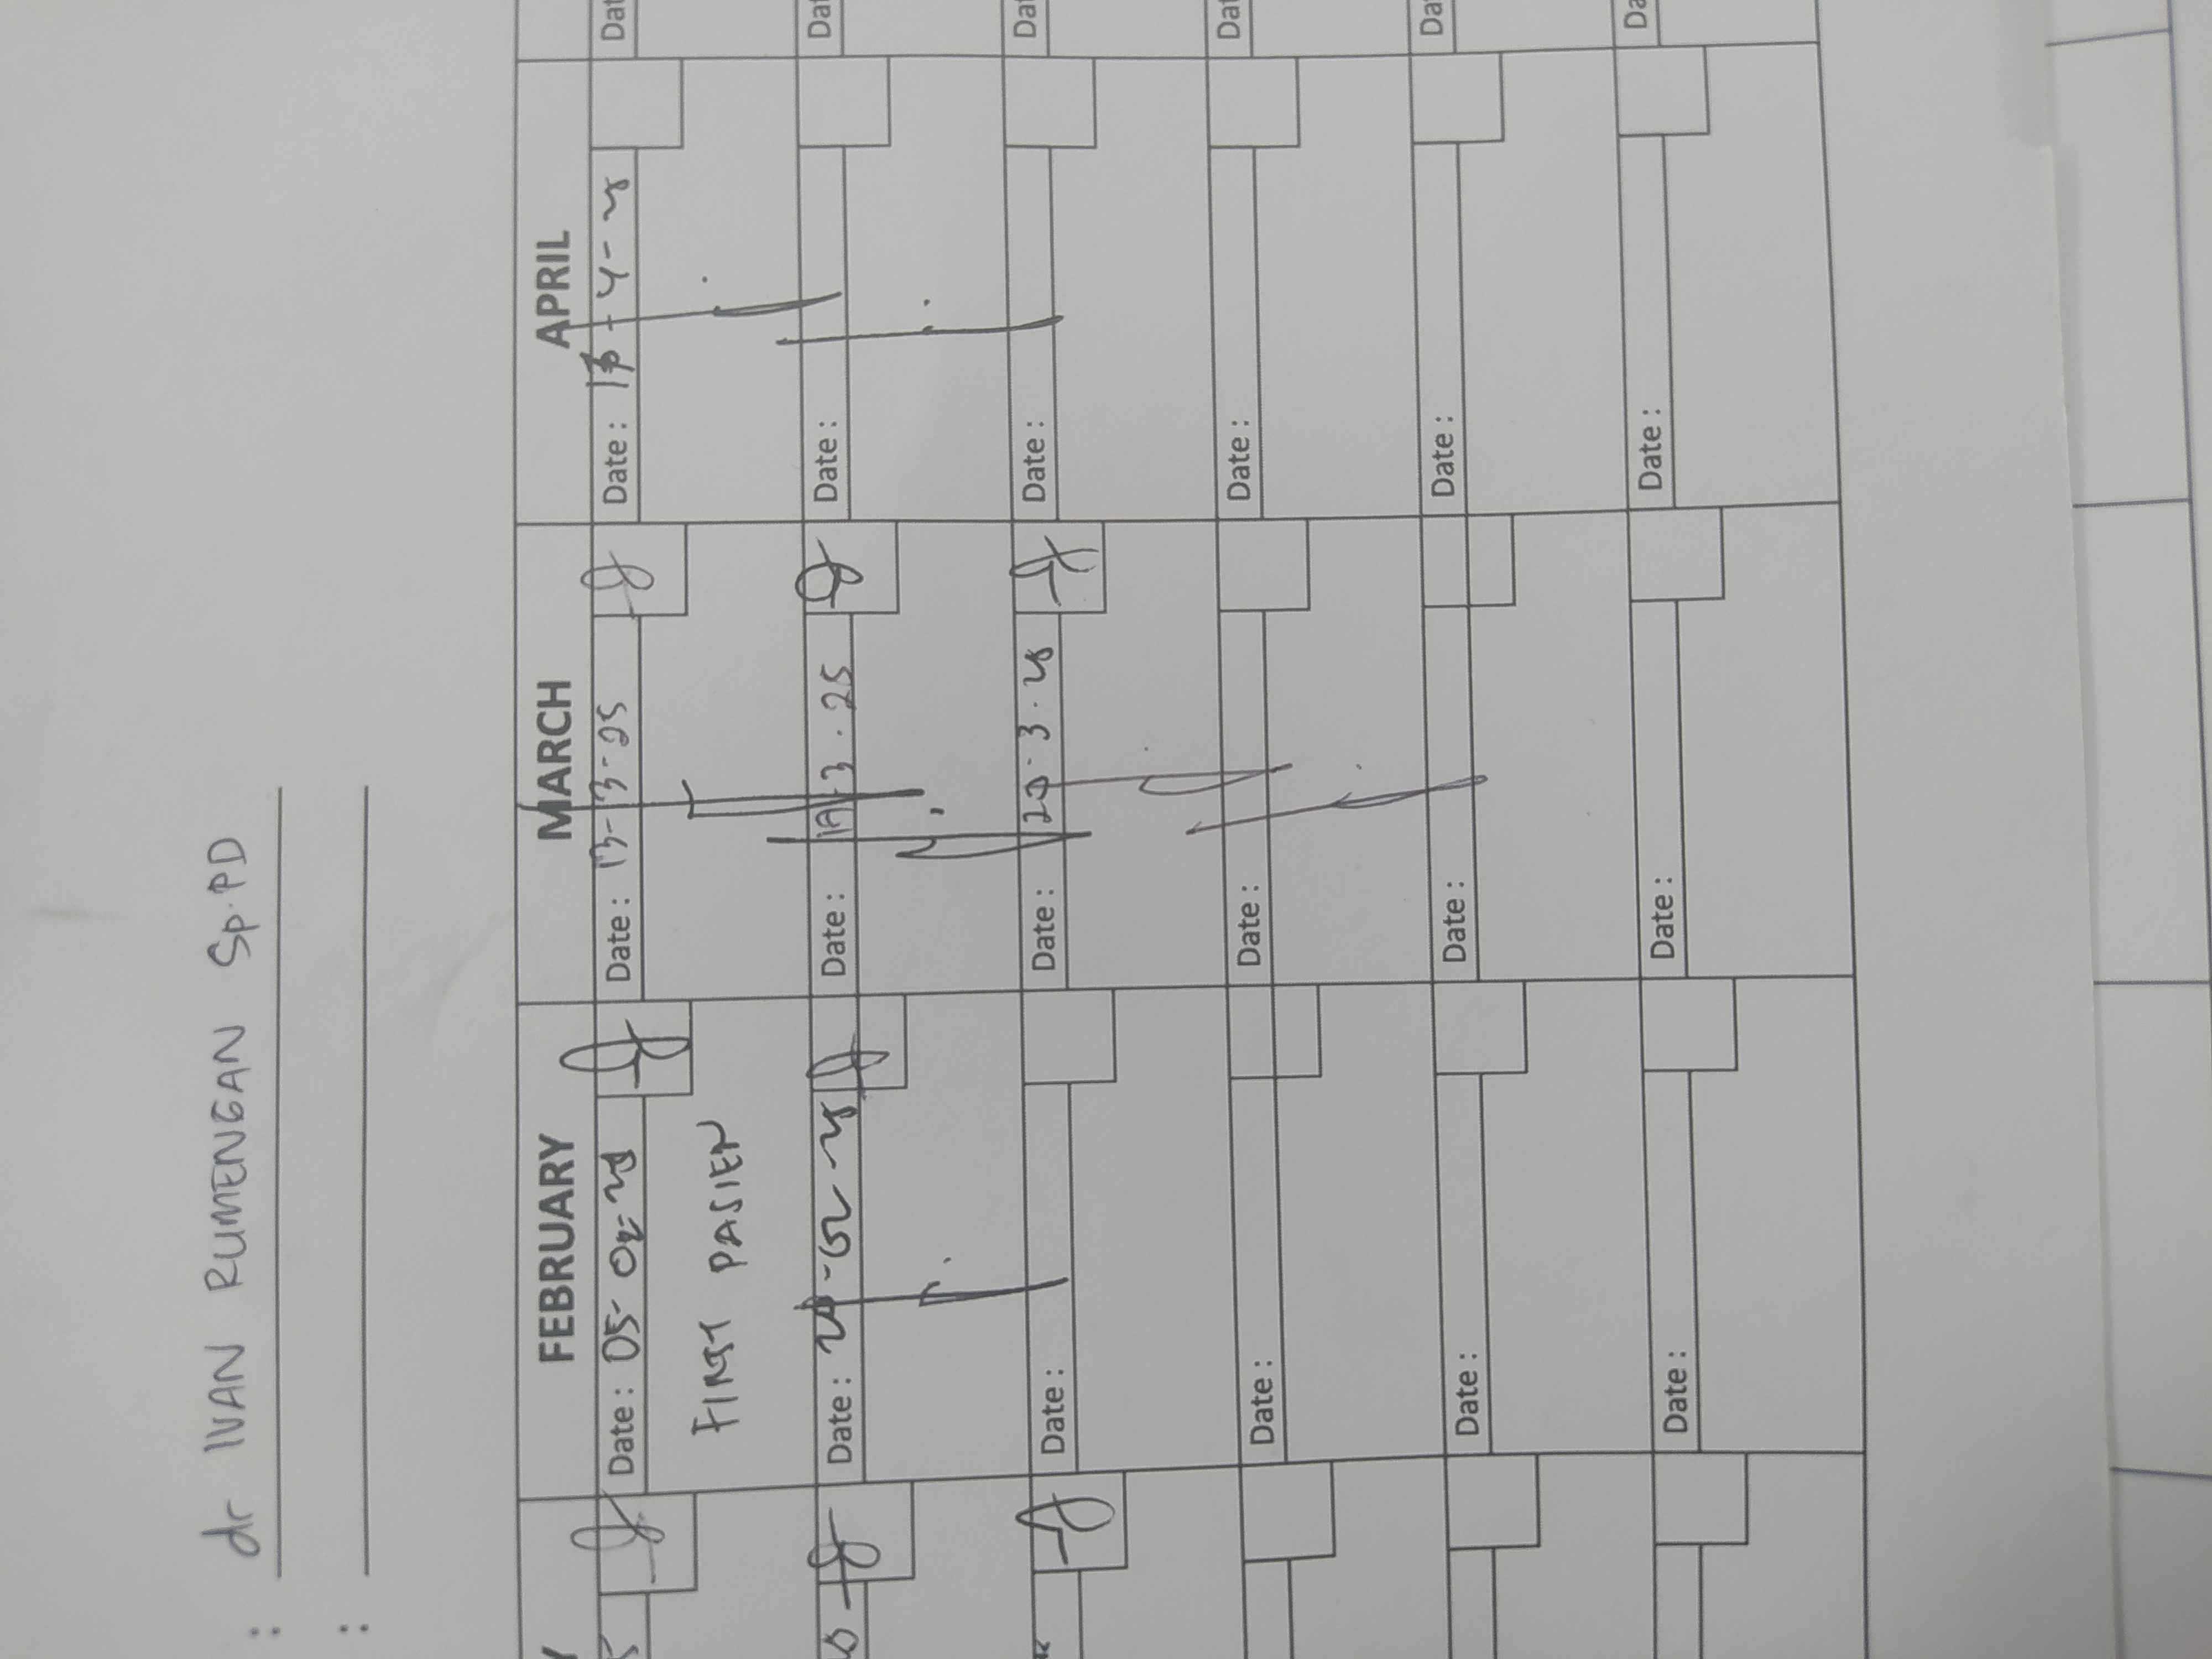 : dr IVAN RUMENGAN Sp.PD
:
FEBRUARY MARCH APRIL
Date : 05-02-25 Date : 13-3-25 Date : -4-25
FIRST PASIEN
Date : 20-02-25 Date : 19-3.25 Date :
Date : Date : 20.3.25 Date :
Date : Date : Date :
Date : Date : Date :
Date : Date : Date :